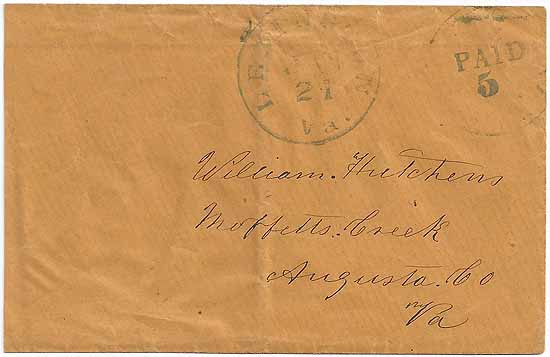 27
Va.
PAID
5
William Hutchens
Moffetts Creek
Augusta Co
Va